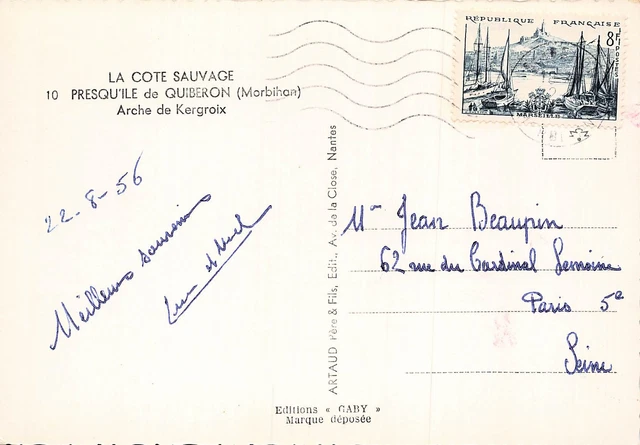 LA COTE SAUVAGE
10 PRESQU'ILE de QUIBERON (Morbihan)
Arche de Kergroix
22-8-56
Meilleurs souvenirs
et
RÉPUBLIQUE FRANÇAISE
8F
POSTES
MARSEILLE
Jean Beaupin
62 rue du Cardinal Lemoine
Paris 5e
Seine
ARTAUD Père & Fils, Edit., Av. de la Close, Nantes
Editions « GABY »
Marque déposée